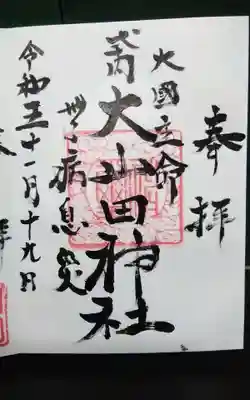 奉拝
大國主命
式内 大山田神社
無病息災
令和五十一月十九日